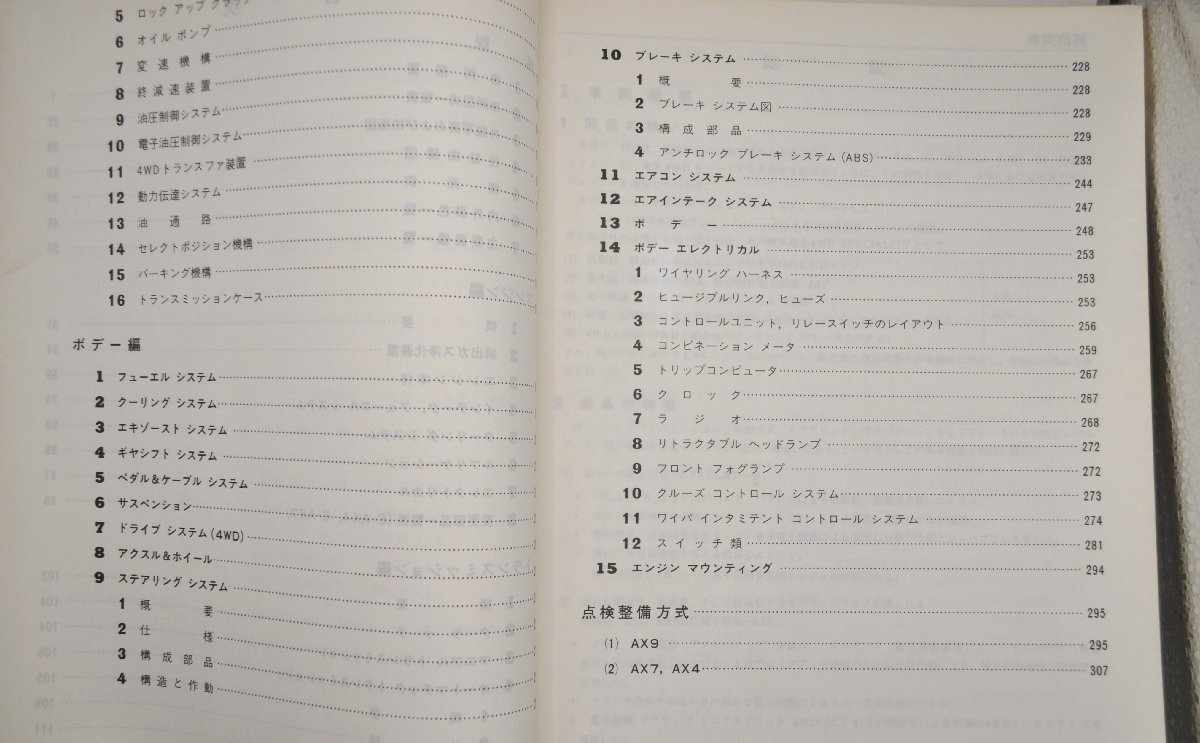 5 ロック アップ クラッ
6 オイル ポンプ
7 変速機構
8 終減速装置
9 油圧制御システム
10 電子油圧制御システム
11 4WDトランスファ装置
12 動力伝達システム
13 油通路
14 セレクトポジション機構
15 パーキング機構
16 トランスミッションケース
ボデー編
1 フューエル システム
2 クーリング システム
3 エキゾースト システム
4 ギヤシフト システム
5 ペダル&ケーブル システム
6 サスペンション
7 ドライブ システム(4WD)
8 アクスル&ホイール
9 ステアリング システム
1 概要
2 仕様
3 構成部品
4 構造と作動
10 ブレーキ システム 228
1 概要 228
2 ブレーキ システム図 228
3 構成部品 229
4 アンチロック ブレーキ システム(ABS) 233
11 エアコン システム 244
12 エアインテーク システム 247
13 ボデー 248
14 ボデー エレクトリカル 253
1 ワイヤリング ハーネス 253
2 ヒュージブルリンク, ヒューズ 253
3 コントロールユニット, リレースイッチのレイアウト 256
4 コンビネーション メータ 259
5 トリップコンピュータ 267
6 クロック 267
7 ラジオ 268
8 リトラクタブル ヘッドランプ 272
9 フロント フォグランプ 272
10 クルーズ コントロール システム 273
11 ワイパ インタミテント コントロール システム 274
12 スイッチ類 281
15 エンジン マウンティング 294
点検整備方式 295
(1) AX9 295
(2) AX7, AX4 307